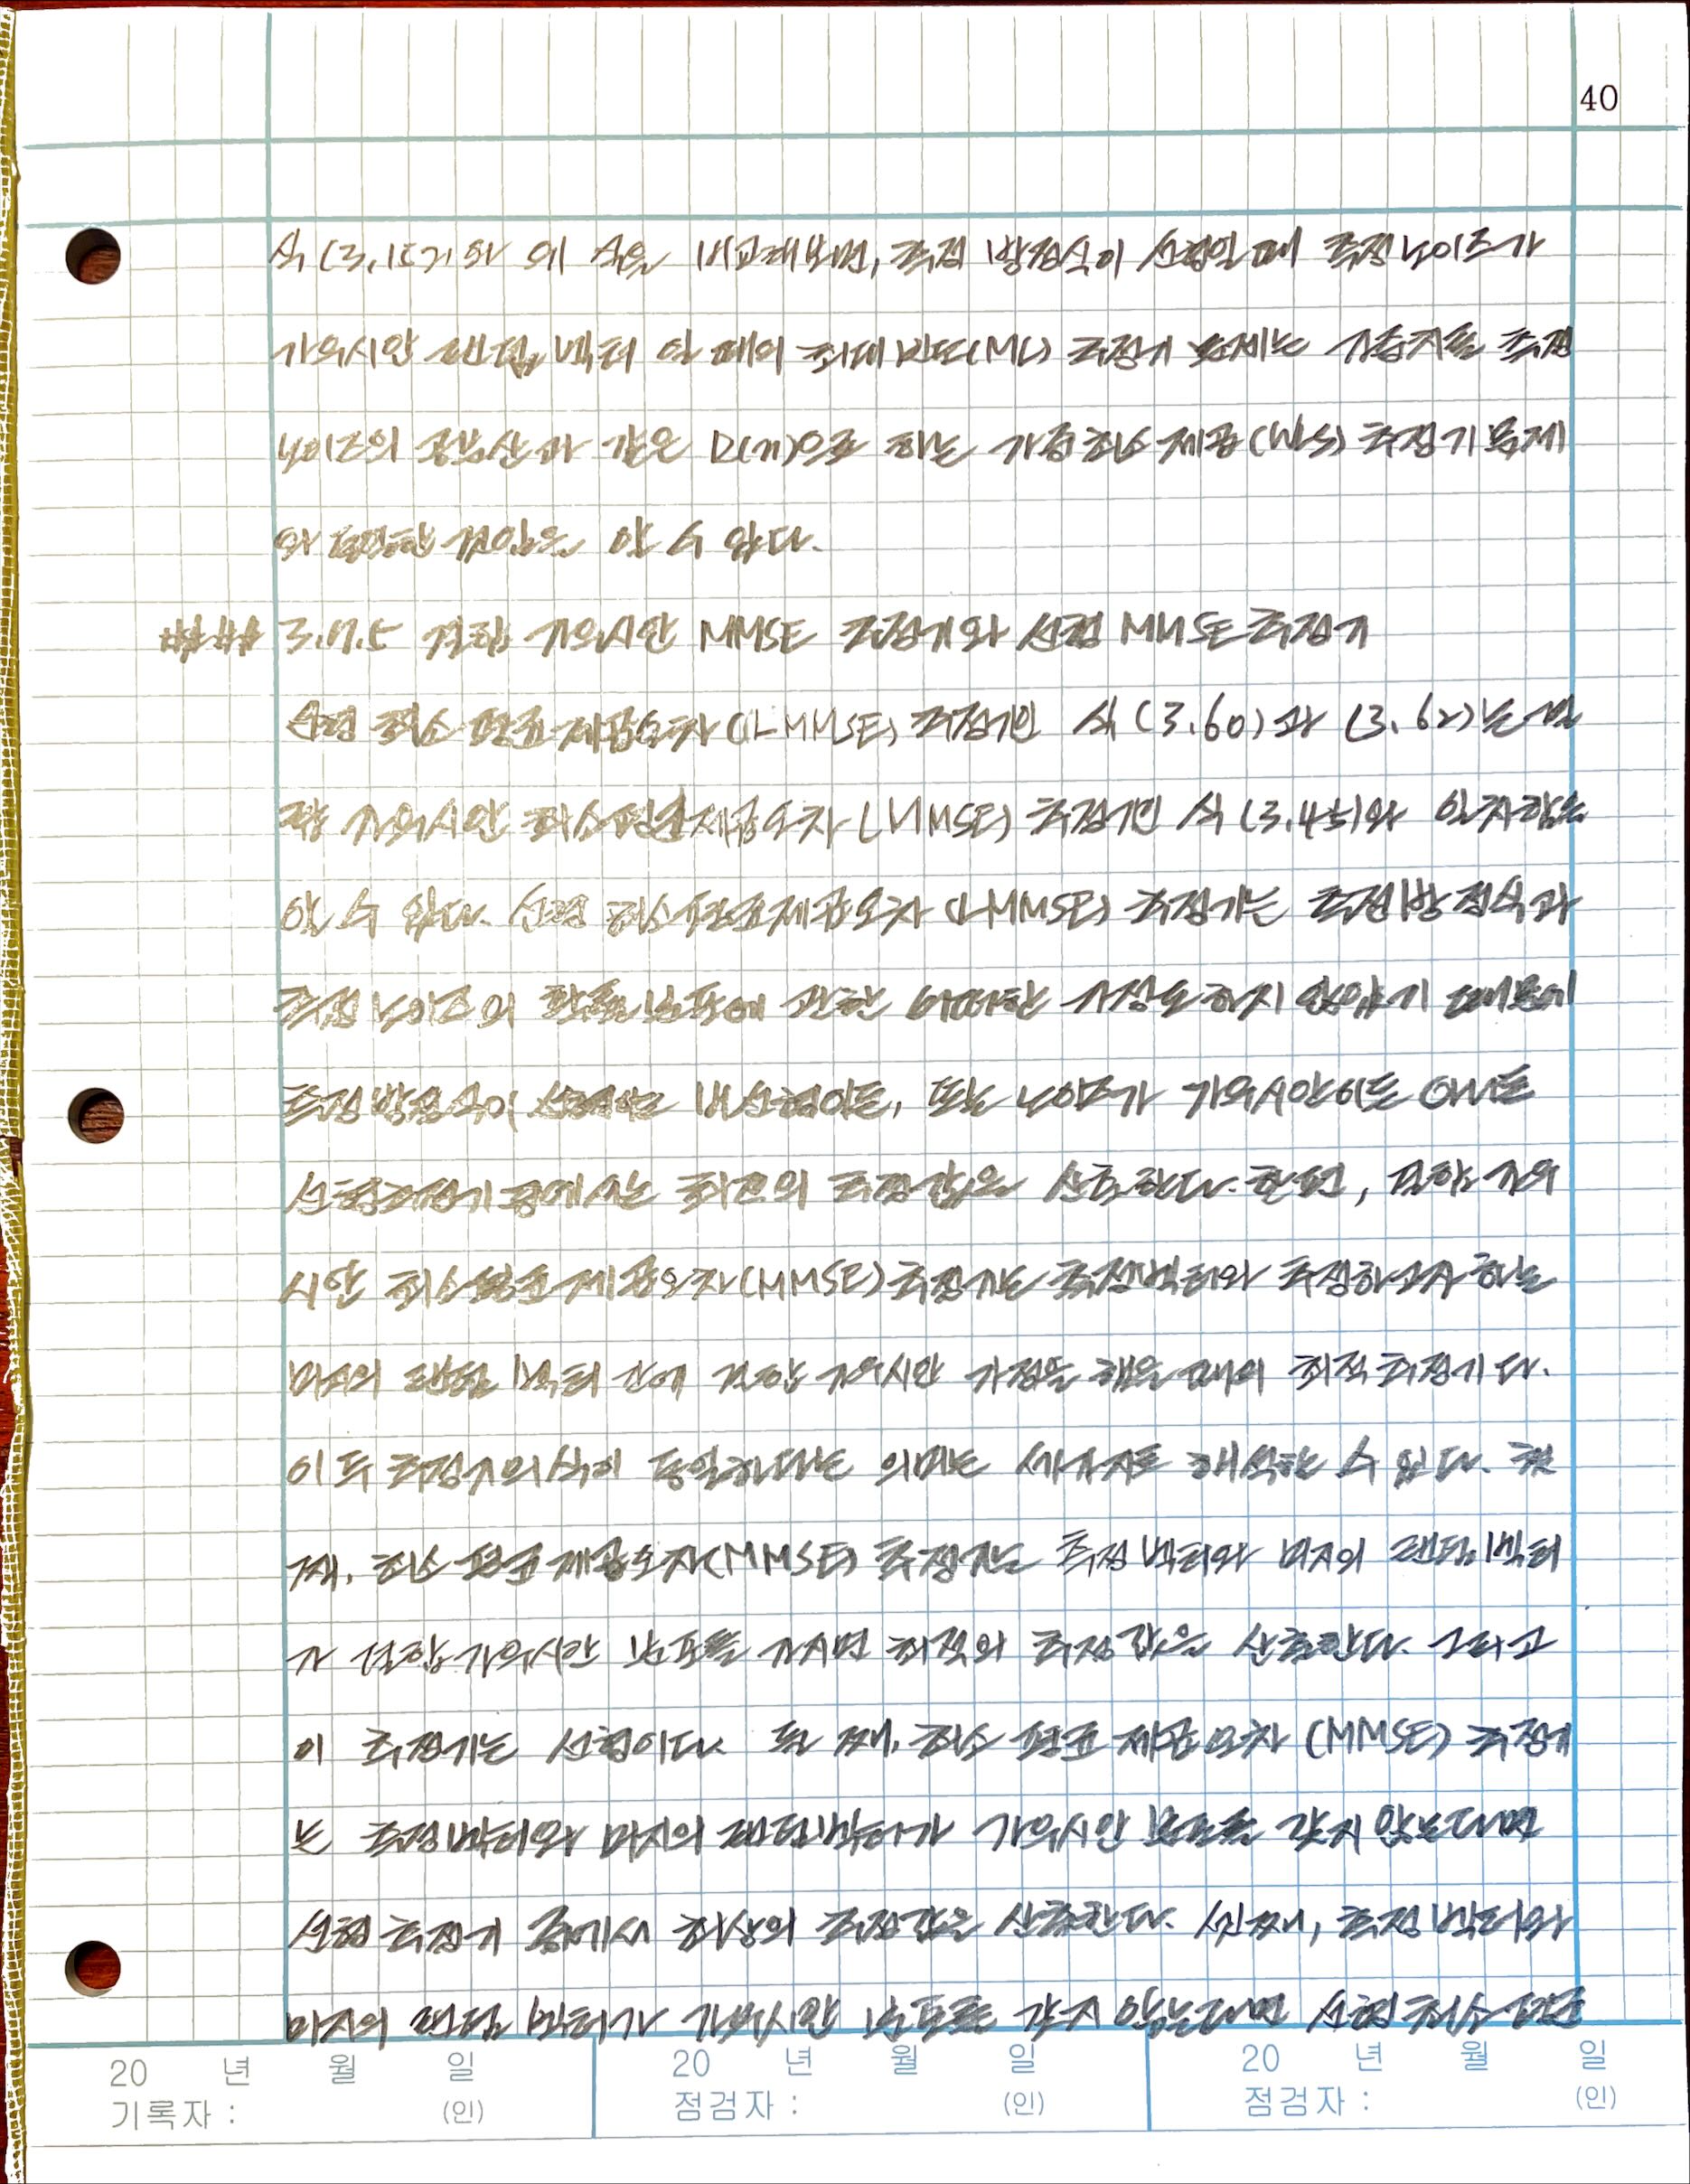 40
식 (3.152)와 위 식을 비교해보면, 측정 방정식이 선형일 때 측정 노이즈가
가우시안 랜덤 벡터 일 때의 최대 빈도(ML) 추정기 문제는 가중치를 측정
노이즈의 공분산과 같은 R(n)으로 하는 가중최소제곱(WLS) 추정기 문제
와 동일한 것임을 알 수 있다.
#### 3.7.5 결합 가우시안 MMSE 추정기와 선형 MMSE 추정기
선형 최소 평균제곱오차(LMMSE) 추정기인 식 (3.60)과 (3.62)는
가우시안 최소평균제곱오차 (MMSE) 추정기인 식 (3.45)와 일치함을
알 수 있다. 선형 최소평균제곱오차 (LMMSE) 추정기는 측정방정식과
측정노이즈의 확률분포에 관한 어떠한 가정도 하지 않았기 때문에
측정방정식이 선형이든 비선형이든, 또는 노이즈가 가우시안이든 아니든
선형추정기 중에서는 최선의 추정값을 산출한다. 한편, 결합 가우
시안 최소평균제곱오차(MMSE)추정기는 측정벡터와 추정하고자 하는
미지의 랜덤 벡터 간에 결합 가우시안 가정을 했을 때의 최적 추정기다.
이 두 추정기의 식이 동일하다는 의미는 세가지로 해석할 수 있다. 첫
째, 최소 평균 제곱오차(MMSE) 추정기는 측정벡터와 미지의 랜덤 벡터
가 결합 가우시안 분포를 가지면 최적의 추정값을 산출한다. 그리고
이 추정기는 선형이다. 둘 째, 최소 평균 제곱 오차 (MMSE) 추정기
는 측정벡터와 미지의 랜덤벡터가 가우시안 분포를 갖지 않는다면
선형 추정기 중에서 최상의 추정값을 산출한다. 셋째, 측정 벡터와
미지의 랜덤 벡터가 가우시안 분포를 갖지 않는다면 선형 최소 평균
20 년 월 일 20 년 월 일 20 년 월 일
기록자 : (인) 점검자 : (인) 점검자 : (인)